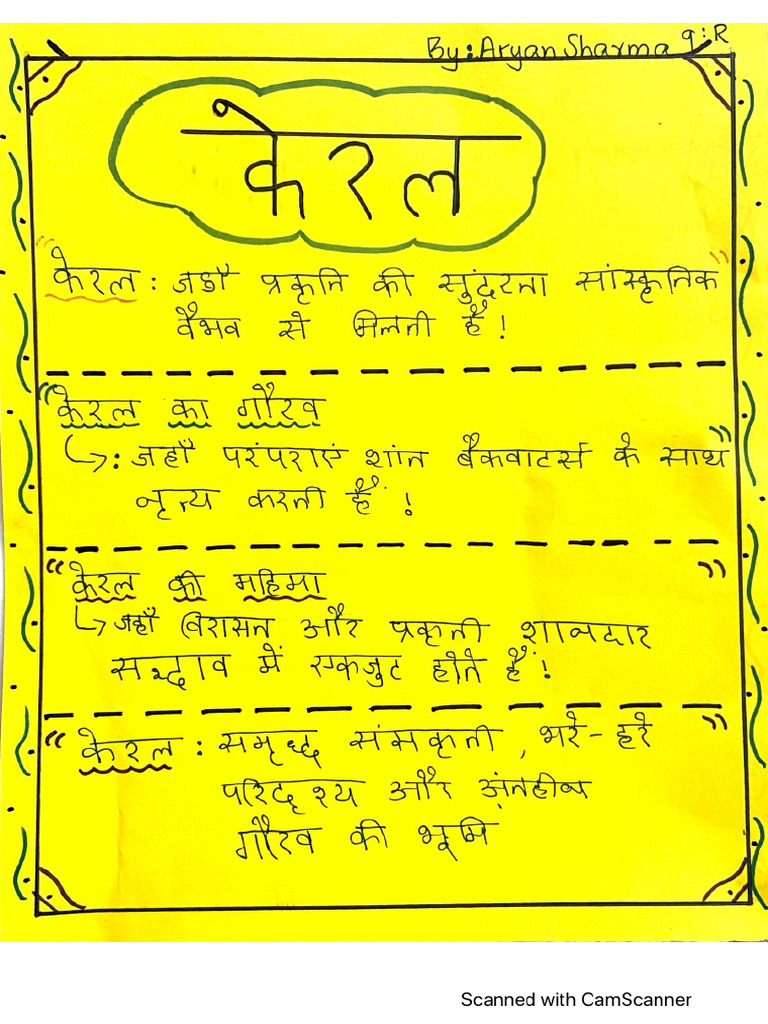 By: Aryan Sharma 9:R
केरल
"केरल : जहाँ प्रकृति की सुंदरता सांस्कृतिक"
वैभव से मिलती है !
"केरल का गौरव
↳ : जहाँ परंपराएं शांत बैकवाटर्स के साथ"
नृत्य करती हैं !
"केरल की महिमा "
↳ जहाँ विरासत और प्रकृती शानदार
सद्भाव में एकजुट होते हैं !
"केरल : समृध्द संस्कृती , भरे-हरे "
परिदृश्य और अंतहीन
गौरव की भूमि
Scanned with CamScanner